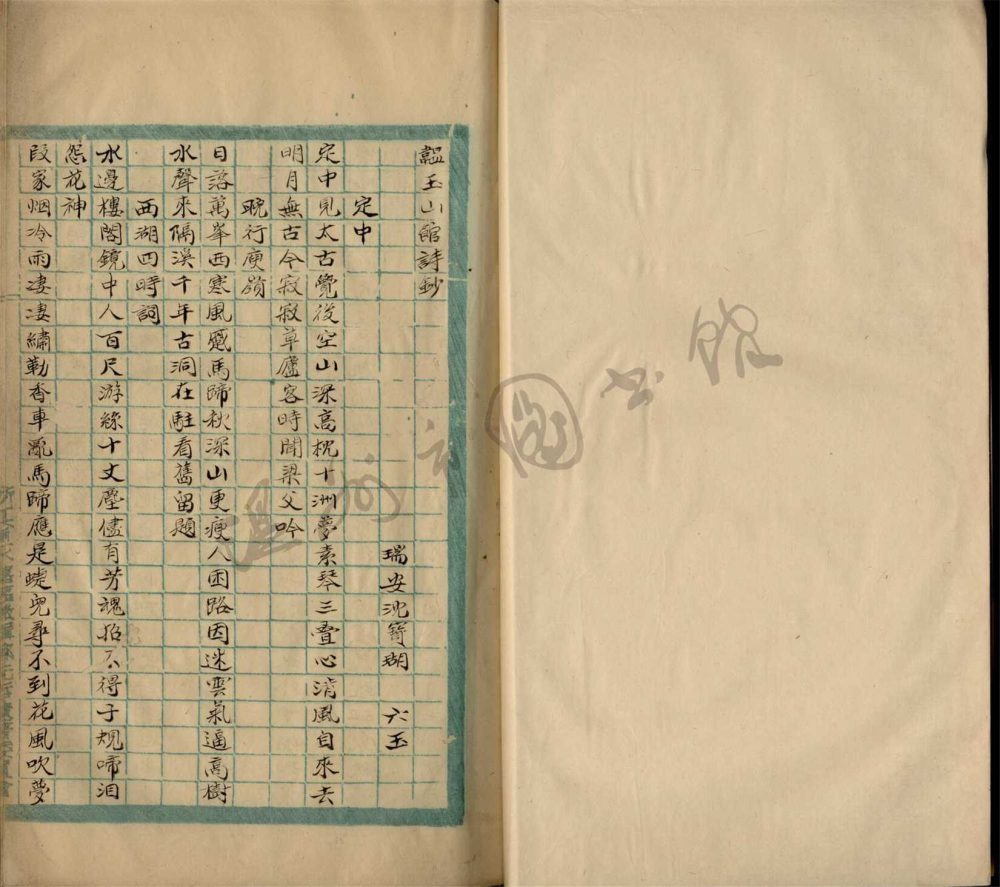 韞玉山館詩鈔
瑞安沈寶瑚 六玉
定中
定中見太古覺後空山深高枕十洲夢素琴三疊心清風自來去
明月無古今寂寂草廬客時聞梁父吟
晚行庾嶺
日落萬峯西寒風蹙馬蹄秋深山更瘦人困路因迷雲氣逼高樹
水聲來隔溪千年古洞在駐看舊留題
西湖四時詞
水邊樓閣鏡中人百尺游絲十丈塵儘有芳魂招不得子規啼泪
怨花神
段家烟冷雨凄凄繡勒香車亂馬蹄應是崚兒尋不到花風吹夢
溫州市圖書館